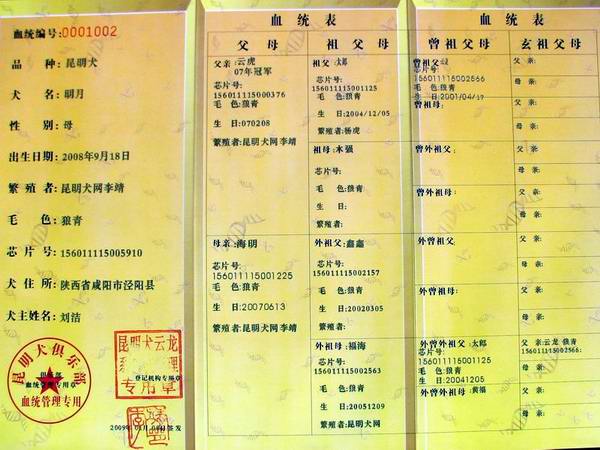 血统编号:0001002
品 种:昆明犬
犬 名:明月
性 别:母
出生日期:2008年9月18日
繁 殖 者:昆明犬网李靖
毛 色:狼青
芯 片 号:156011115005910
犬 住 所:陕西省咸阳市泾阳县
犬主姓名:刘洁
昆明犬俱乐部
俱乐部
血统管理专用章
血统管理专用
昆明犬云龙
专用章
登记机构专用章
血 统 表
父 母
父亲:云虎
07年冠军
芯片号:
156011115000376
毛 色:狼青
生 日:070208
繁殖者:昆明犬网李靖
母亲:海明
芯片号:
156011115001225
毛 色:狼青
生 日:20070613
繁殖者:昆明犬网李靖
祖 父 母
祖父:太郎
芯片号:
156011115001125
毛 色:狼青
生 日:2004/12/05
繁殖者:杨虎
祖母:木强
芯片号:
毛 色:狼青
生 日:
繁殖者:
外祖父:鑫鑫
芯片号:
156011115002157
毛 色:狼青
生 日:20020305
繁殖者:
外祖母:福海
芯片号:
156011115002563
毛 色:狼青
生 日:20051209
繁殖者:昆明犬网
血 统 表
曾祖父母
曾祖父:
芯片号:
156011115002566
毛 色:狼青
生 日:2001/04/17
曾祖母:
曾外祖父:
曾外祖母:
外曾祖父:
外曾祖母:
外曾外祖父:太郎
芯片号:
156011115001125
毛 色:狼青
生 日:20041205
外曾外祖母:黄福
玄祖父母
父 亲:
母 亲:
父 亲:
母 亲:
父 亲:
母 亲:
父 亲:
母 亲:
父 亲:
母 亲:
父 亲:
母 亲:
父 亲:云龙 狼青
156011115002566:
母 亲:
父 亲:
母 亲: